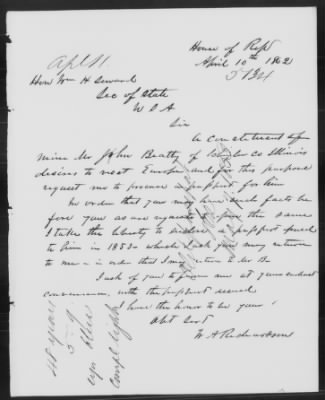 House of Reps
April 10th 1862
Apl 11
5134
Hon Wm H Seward
Sec of State
U S A
Sir
A constituent of
mine Mr John Beatty of Co Illinois
desires to visit Europe and for this purpose
request me to procure a passport for him
In order that you may have such facts be
fore you as are required to give the same
I take the liberty to enclose a passport issued
to him in 1853 which back you may return
to me in order that I may return to Mr B.
I ask of you to furnish me at your earliest
convenience, with the passport asked
I have the honor to be your
Obt Svt
W A Richardson
48 years
5 - 9
eyes blue
Compl light